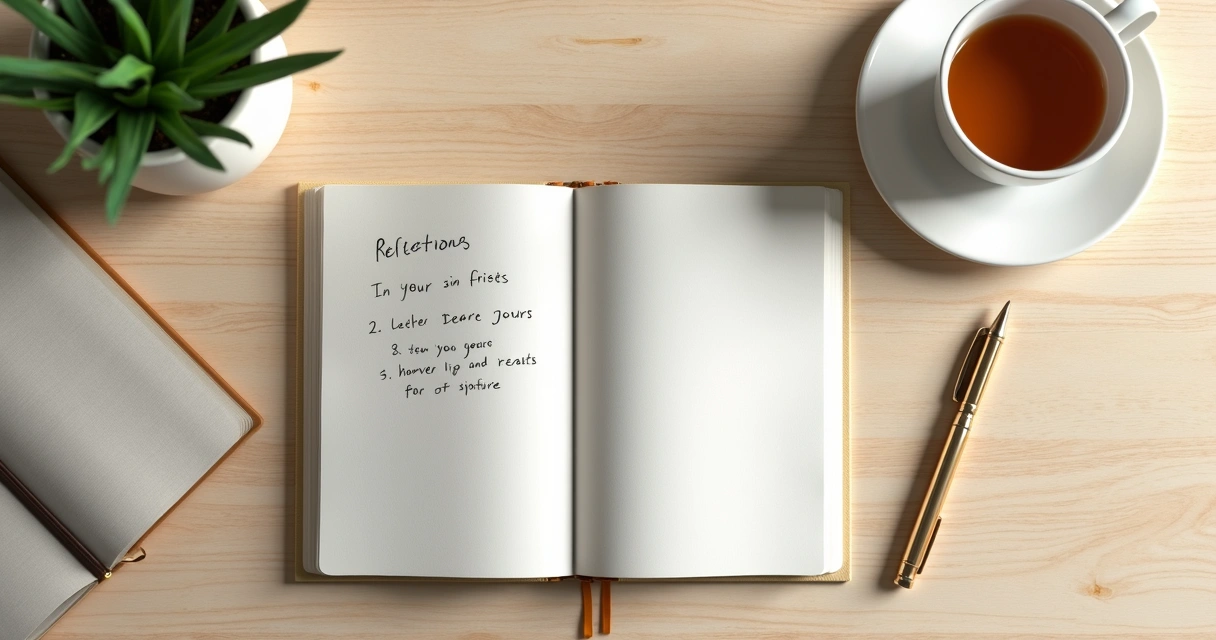 Reflections
In your sin frises
2. Leeter Deare Jours
8. you gears
5. hoover lip and
for of sjofure